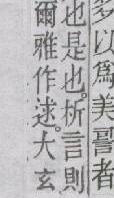 以爲美譽者
也是也。析言則
爾雅作逑。大玄